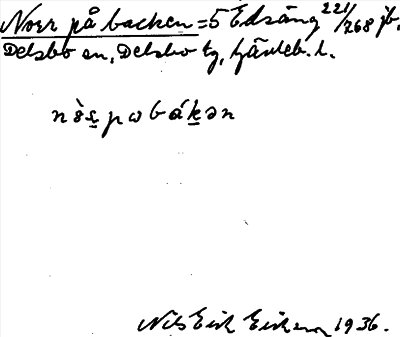 Noer på backen = 5 Edsäng 221/268 jb.
Delsbo sn, Delsbo tg, Gävleb. l.
Nils Erik Eriksson 1936.